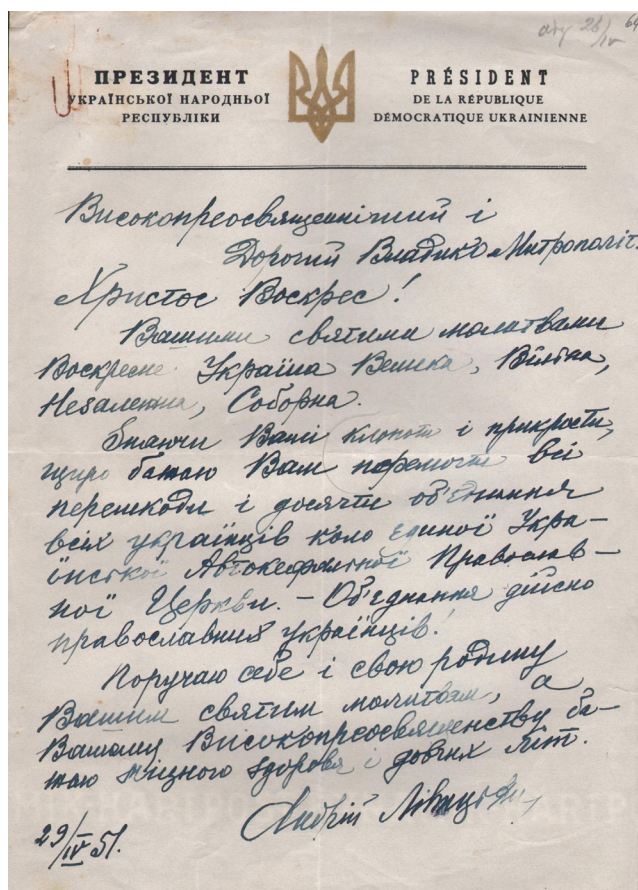 64
28/IV
ПРЕЗИДЕНТ
УКРАЇНСЬКОЇ НАРОДНЬОЇ
РЕСПУБЛІКИ
PRÉSIDENT
DE LA RÉPUBLIQUE
DÉMOCRATIQUE UKRAINIENNE
Високопреосвященніший і
Дорогий Владико Митрополіт.
Христос Воскрес!
Вашими святими молитвами
Воскресне Україна Велика, Вільна,
Незалежна, Соборна.
Знаючи Ваші клопоти і прикрости,
щиро бажаю Вам перемогти всі
перешкоди і досягти об'єднання
всіх українців коло єдиної Укра-
їнської Автокефальної Православ-
ної Церкви. – Об'єднання дійсно
православних українців!
Поручаю себе і свою родину
Вашим святим молитвам, а
Вашому Високопреосвященству ба-
жаю міцного здоровя і довгих літ.
Андрій Лівицький
29/IV 51.